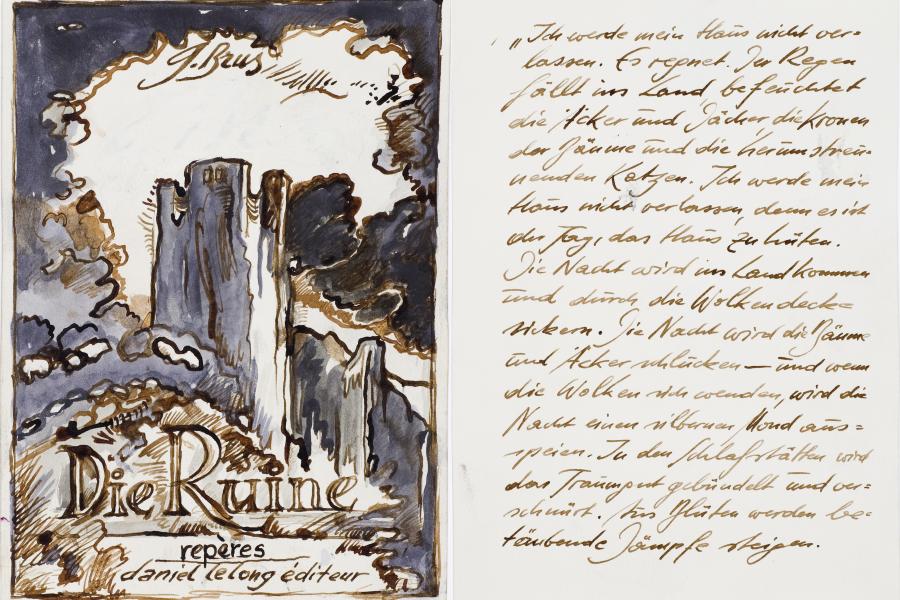 G. Brus
Die Ruine
repères
daniel lelong éditeur
„Ich werde mein Haus nicht ver=
lassen. Es regnet. Der Regen
fällt ins Land, befeuchtet
die Äcker und Dächer, die Kronen
der Bäume und die herumstreu-
nenden Katzen. Ich werde mein
Haus nicht verlassen, denn es ist
der Tag, das Haus zu hüten.
Die Nacht wird ins Land kommen
und durch die Wolkendecke
sickern. Die Nacht wird die Bäume
und Äcker schlucken – und wenn
die Wolken sich wenden, wird die
Nacht einen silbernen Mond aus=
speien. In den Schlafstätten wird
das Traumgut gebündelt und ver=
schnürt. Aus Blüten werden be=
täubende Dämpfe steigen.